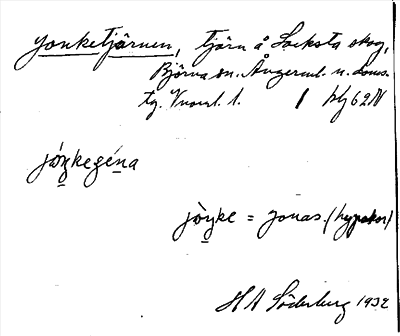 Jonketjärnen, tjärn å Locksta skog,
Björna sn. Ångerml. n. doms.
tg. Vuoml. 1. | blg 62N
jóŋkegéna
jòŋke = Jonas. (hypokor)
H A Söderberg 1932